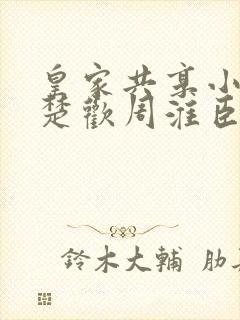 皇家共享小
楚歡周淮臣
鈴木大輔 肋